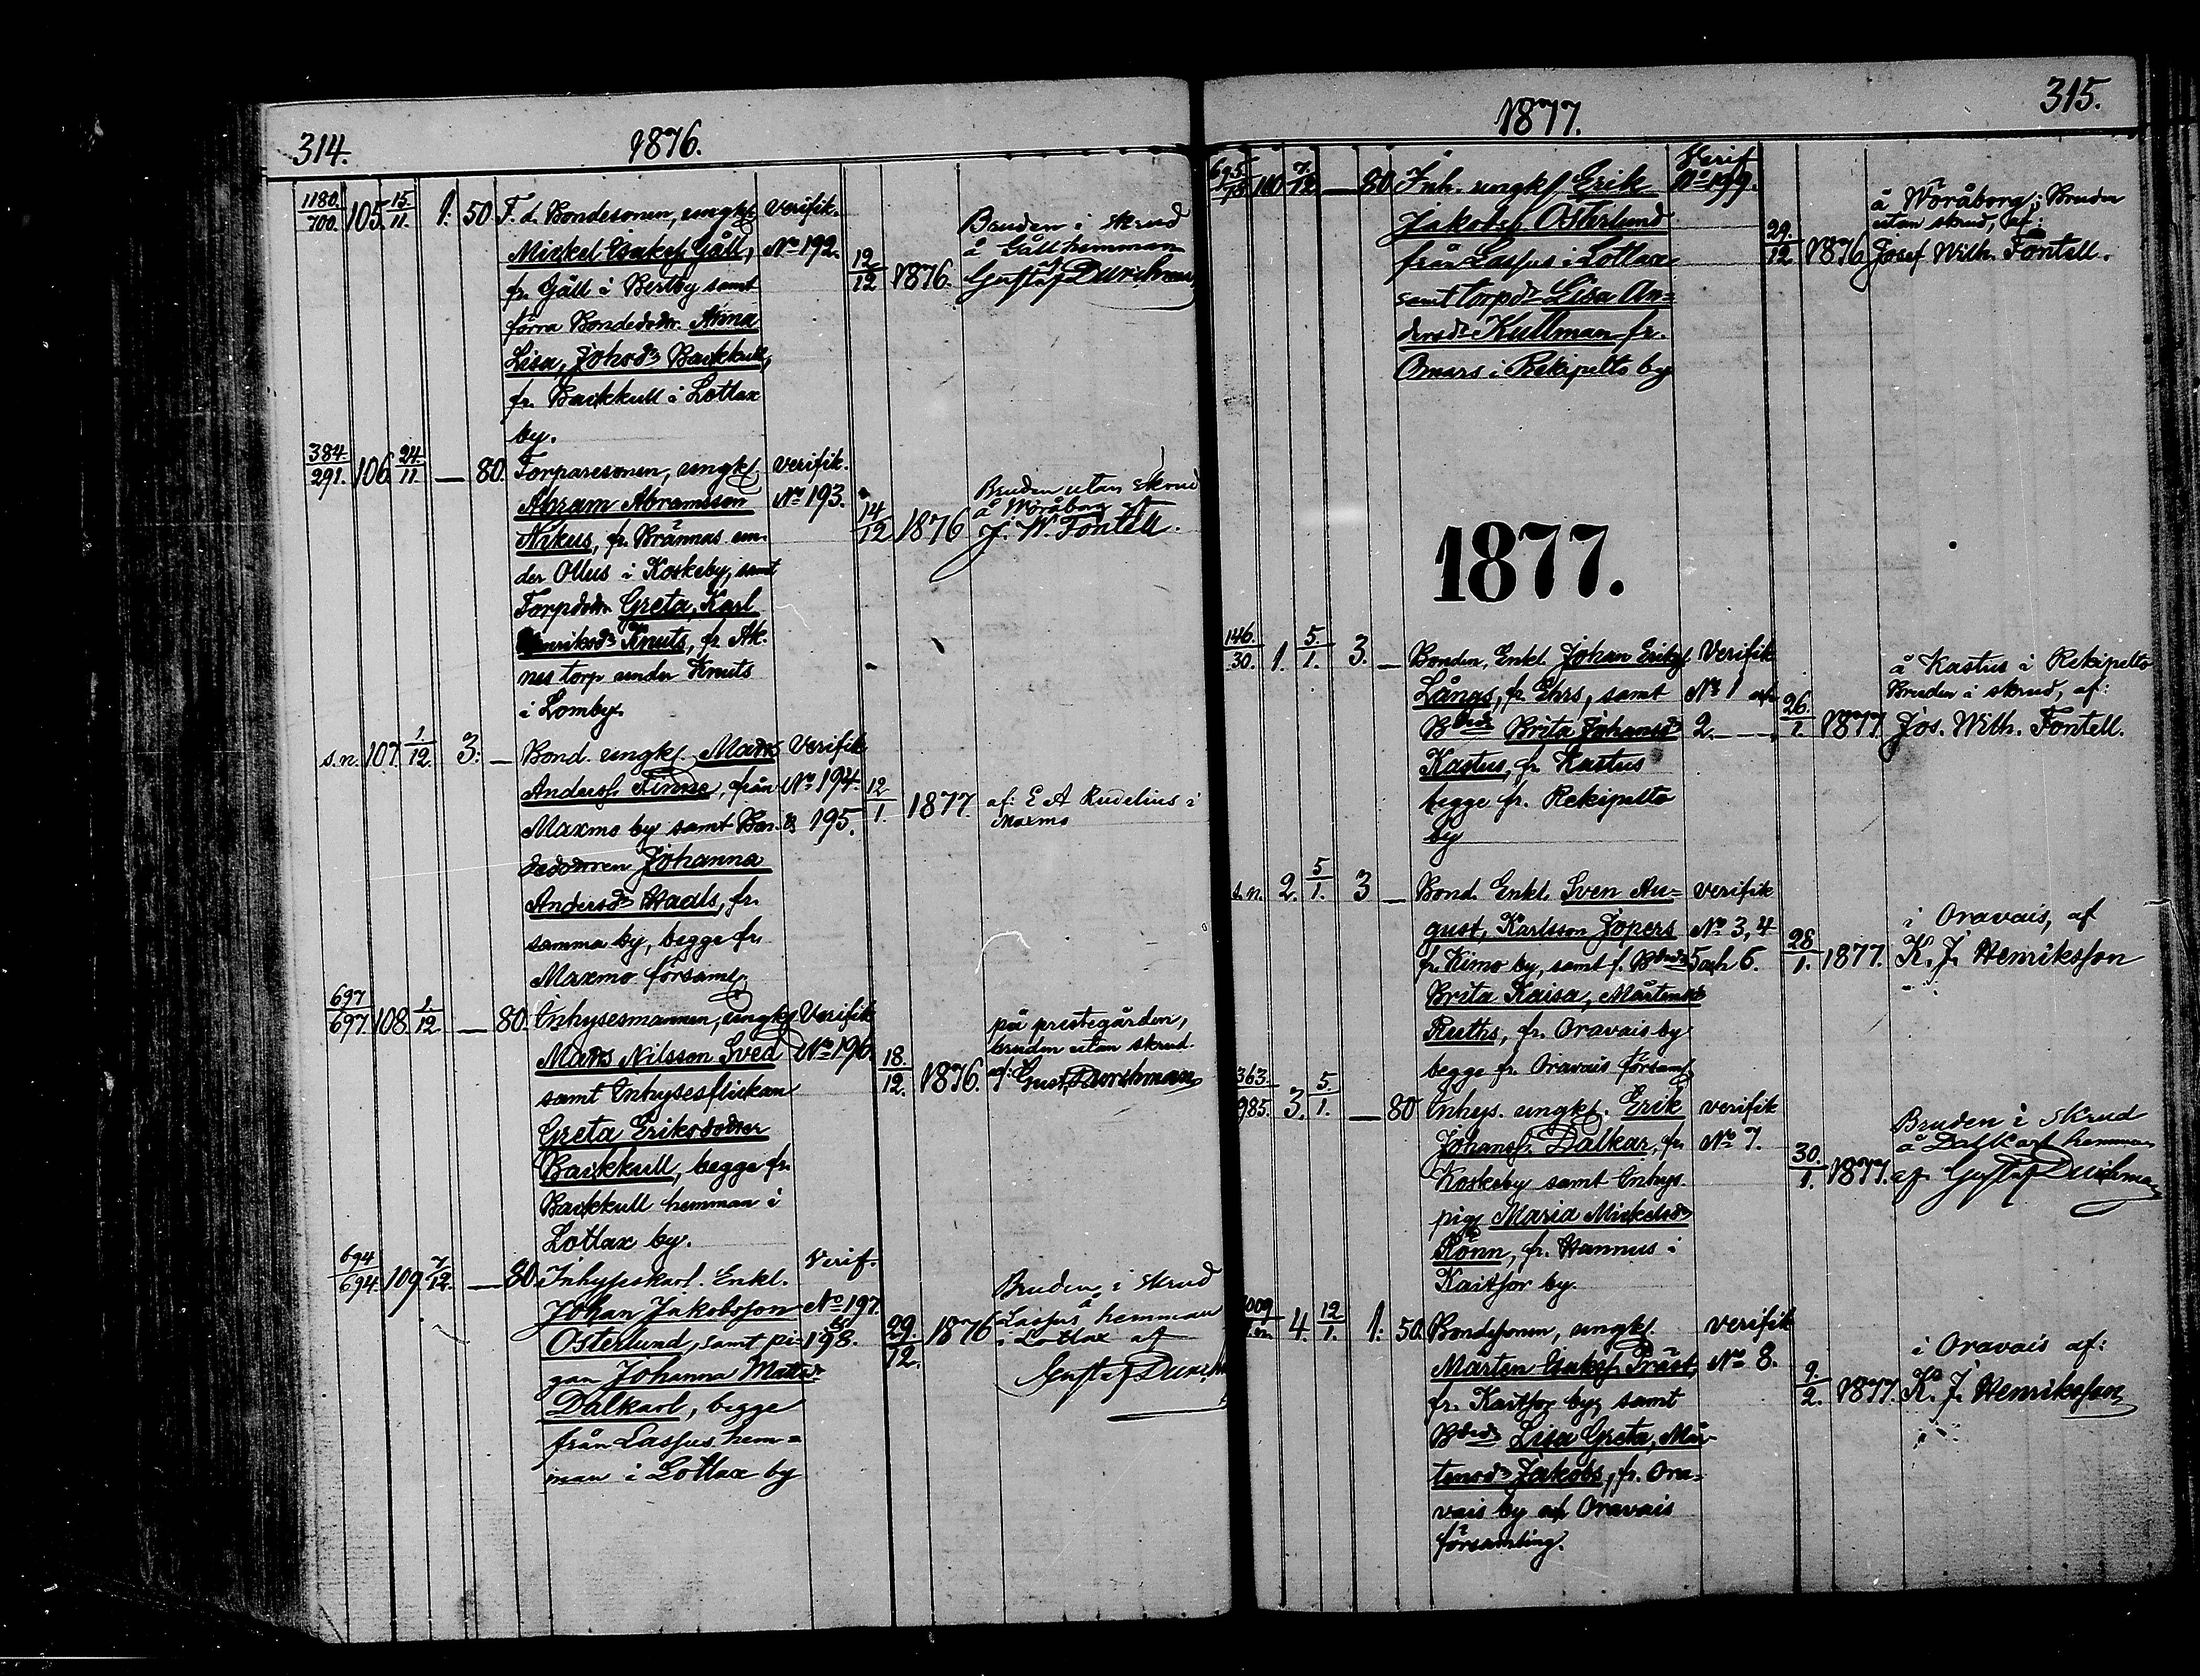 314.
1876.
1180.
700.
105.
15.
11.
1: 50
F. d. Bondesonen, ungkl.
Mickel Isaksf. Gåll,
fr. Gåll i Bertby samt
förra Bondedotr. Anna
Lisa, Johsdr Backkull,
fr. Backkull i Lotlax
by.
Verifik.
No 192.
12
12
1876.
Bruden i skrud
å Gåll hemman
af
Gustaf Durchman
384.
291.
106.
24.
11.
— 80.
Torparesonen, ungkl
Abram Abramsson
Nikus, fr. Brännas un-
der Ollus i Koskeby, samt
Torpdotr Greta, Karl
Henriksdr Knuts, fr. Ak-
nes torp under Knuts
i Lomby.
verifik.
No 193.
14
12
1876
Bruden utan skrud
å Wöråborg af
J. W. Fontell.
s.n.
107.
1.
12.
3: —
Bond. ungkl. Matts
Andersf. Finne, från
Maxmo by samt Bon-
dedottren Johanna
Andersdr Stadls, fr.
samma by, begge fr.
Maxmo församl.
Verifik
No 194.
& 195.
12
1.
1877.
af: E A Rudelius i
Maxmo
697
697.
108.
1
12
— 80.
Inhysesmannen, ungkl
Matts Nilsson Sved
samt Inhysesflickan
Greta Eriksdotter
Backkull, begge fr.
Backkull hemman i
Lotlax by.
Verifik
No 196.
18.
12.
1876.
på prestegården,
bruden utan skrud.
af: Gust. Durchman
694
694.
109.
7
12.
— 80.
Inhysskarl. Enkl.
Johan Jakobsson
Österlund, samt pi-
gan Johanna Mattsdr
Dalkarl, begge
från Lassus hem-
man i Lotlax by
Verif.
No 197.
&
198.
29.
12.
1876
Bruden i skrud
å
Lassus hemman
i Lotlax af
Gustaf Durchm
1877.
315.
695.
100
7
12
— 80
Inh. ungkl. Erik
Jakobsf. Österlund
från Lassus i Lotlax
samt torpdr Lisa An-
dersdr Kullman fr.
Omars i Rekipelto by
Verif
No 199.
29.
12
1876
å Wöråborg; Bruden
utan skrud, af:
Josef Wilh. Fontell.
1877.
146.
30.
1.
5.
1.
3. —
Bonden, Enkl. Johan Eriksf.
Långs, fr. Ehrs, samt
Bdedr Brita Johansdr
Kastus, fr. Kastus
begge fr. Rekipelto
by
Verifik
No 1 och
2. —
26.
1.
1877
å Kastus i Rekipelto
Bruden i skrud, af:
Jos. Wilh. Fontell.
s.n.
2.
5
1.
3 —
Bond. Enkl. Sven Au-
gust, Karlsson Jopers
fr. Kimo by, samt f. Bdedr
Brita Kaisa, Mårtensdr
Ruths, fr. Oravais by
begge fr. Oravais församl
verifik
No 3, 4
5 och 6.
28
1.
1877.
i Oravais, af
K. J. Henriksson
363.
985.
3.
5.
1.
— 80
Inhys. ungkl. Erik
Johansf. Dalkar, fr.
Koskeby samt Inhys.
pig. Maria Mickelsdr
Rönn, fr. Hannus i
Kaitsor by.
verifik
No 7.
30.
1.
1877.
Bruden i skrud
å Dalkarl hemman
af Gustaf Durchman
1009
s.n.
4.
12
1.
1: 50.
Bondesonen, ungkl.
Mårten Isaksf. Präst,
fr. Kaitsor by, samt
Bdedr Lisa Greta, Mår-
tensdr Jakobs, fr. Ora-
vais by och Oravais
församling.
verifik
No 8.
9.
2.
1877.
i Oravais af:
K. J. Henriksson